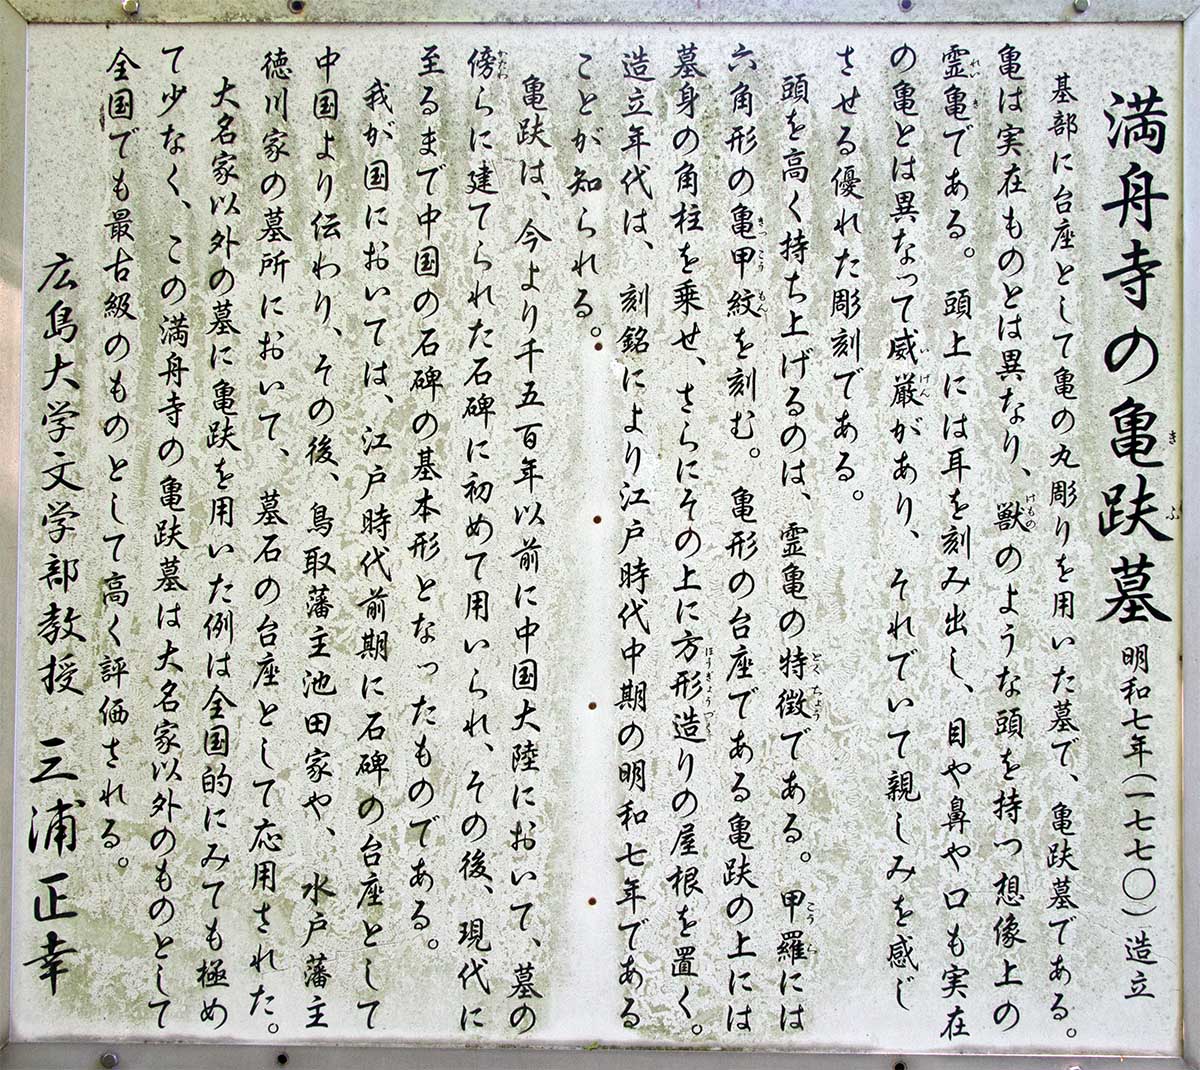 満舟寺の亀趺墓 明和七年（一七七〇）造立
基部に台座として亀の丸彫りを用いた墓で、亀趺墓である。
亀は実在ものとは異なり、獣のような頭を持つ想像上の
霊亀である。頭上には耳を刻み出し、目や鼻や口も実在
の亀とは異なって威厳があり、それでいて親しみを感じ
させる優れた彫刻である。
頭を高く持ち上げるのは、霊亀の特徴である。甲羅には
六角形の亀甲紋を刻む。亀形の台座である亀趺の上には
墓身の角柱を乗せ、さらにその上に方形造りの屋根を置く。
造立年代は、刻銘により江戸時代中期の明和七年である
ことが知られる。
亀趺は、今より千五百年以前に中国大陸において、墓の
傍らに建てられた石碑に初めて用いられ、その後、現代に
至るまで中国の石碑の基本形となったものである。
我が国においては、江戸時代前期に石碑の台座として
中国より伝わり、その後、鳥取藩主池田家や、水戸藩主
徳川家の墓所において、墓石の台座として応用された。
大名家以外の墓に亀趺を用いた例は全国的にみても極め
て少なく、この満舟寺の亀趺墓は大名家以外のものとして
全国でも最古級のものとして高く評価される。
広島大学文学部教授 三浦正幸